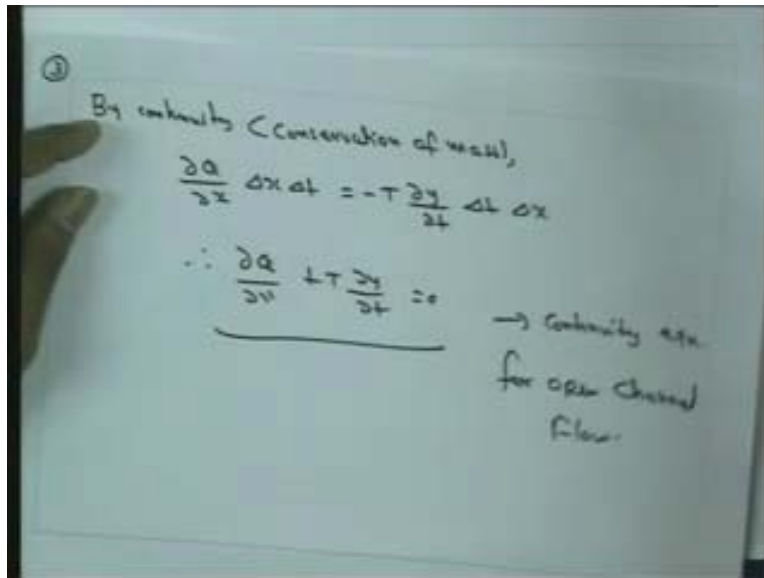 ③
By continuity (Conservation of mass),
∂Q/∂x Δx Δt = -T ∂y/∂t Δt Δx
∴ ∂Q/∂x + T ∂y/∂t = 0
→ Continuity eqn
for open Channel
Flow.